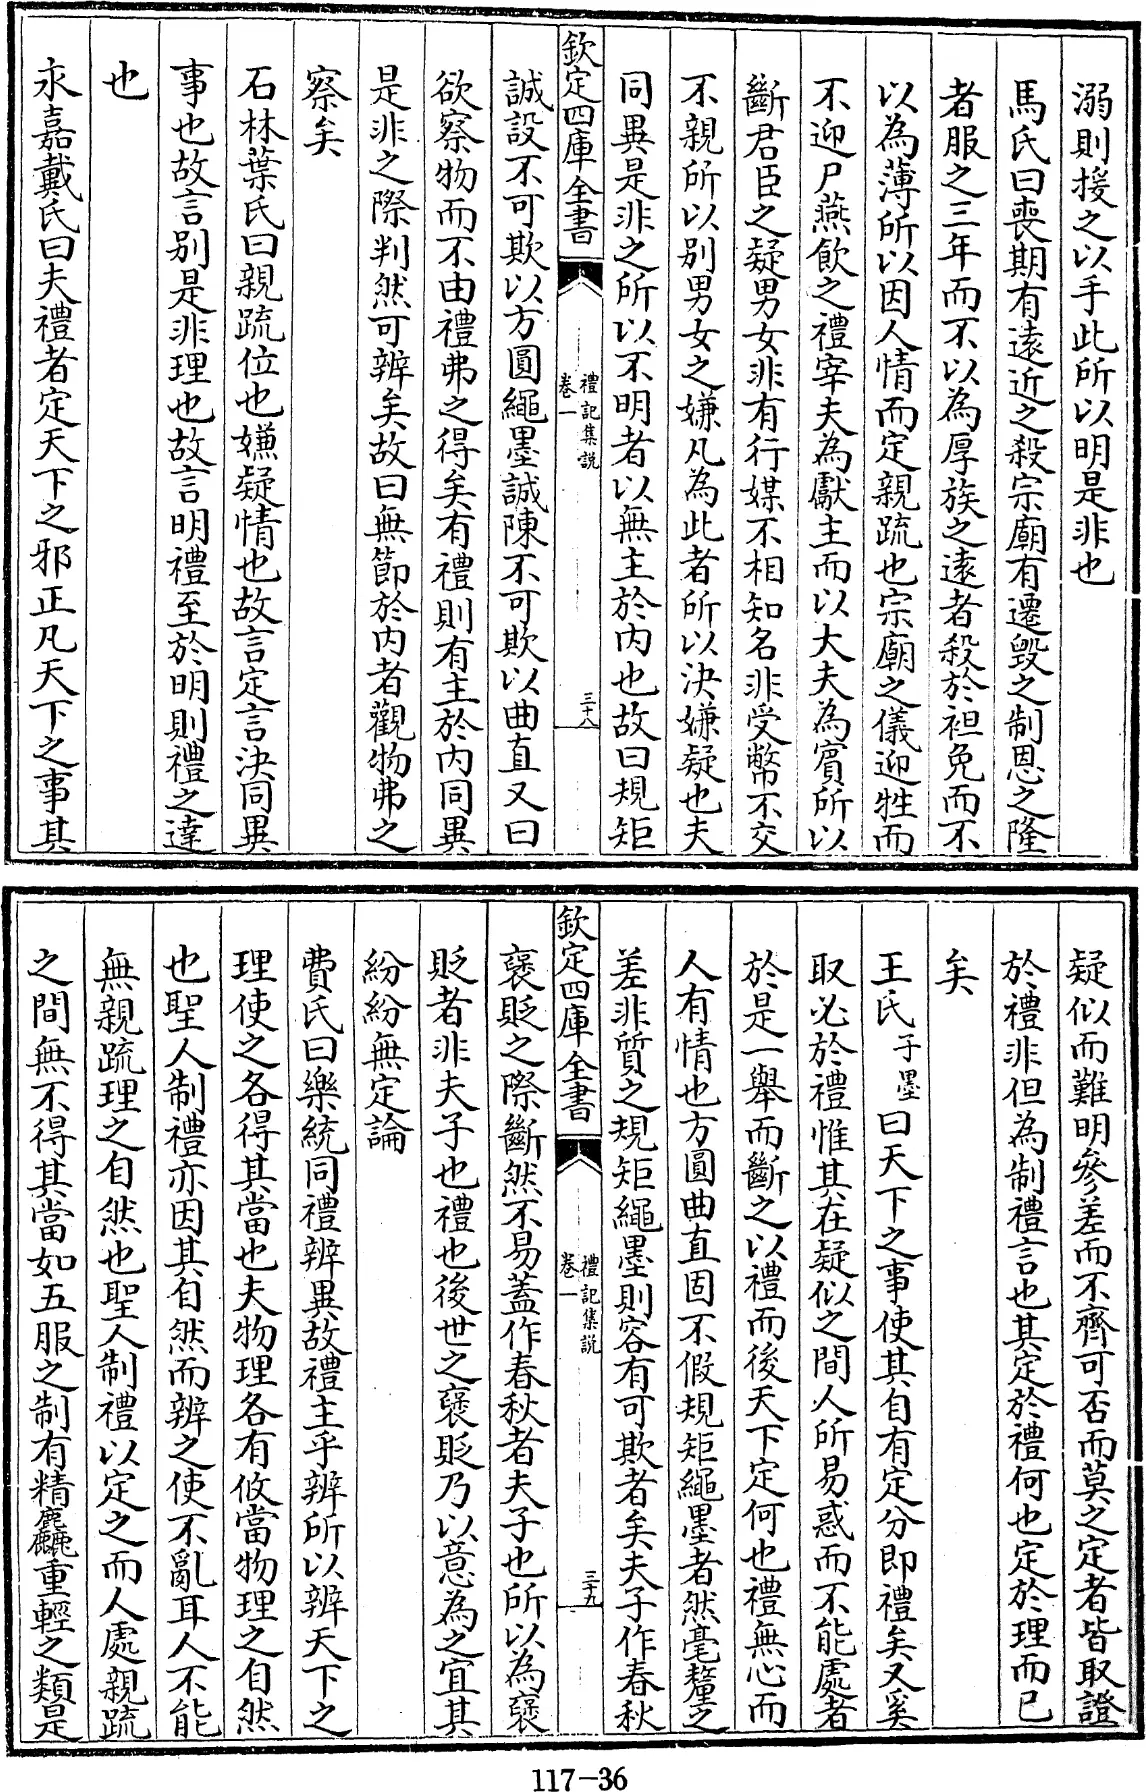 溺則援之以手此所以明是非也
馬氏曰喪期有遠近之殺宗廟有遷毀之制恩之隆
者服之三年而不以為厚族之遠者殺於袒免而不
以為薄所以因人情而定親疏也宗廟之儀迎牲而
不迎尸燕飲之禮宰夫為獻主而以大夫為賓所以
斷君臣之疑男女非有行媒不相知名非受幣不交
不親所以别男女之嫌凡為此者所以決嫌疑也夫
同異是非之所以不明者以無主於内也故曰規矩
欽定四庫全書
禮記集説
卷一
三十八
誠設不可欺以方圓繩墨誠陳不可欺以曲直又曰
欲察物而不由禮弗之得矣有禮則有主於内同異
是非之際判然可辨矣故曰無節於内者觀物弗之
察矣
石林葉氏曰親疏位也嫌疑情也故言定言決同異
事也故言别是非理也故言明禮至於明則禮之達
也
永嘉戴氏曰夫禮者定天下之邪正凡天下之事其
疑似而難明參差而不齊可否而莫之定者皆取證
於禮非但為制禮言也其定於禮何也定於理而已
矣
王氏子墨曰天下之事使其自有定分即禮矣又奚
取必於禮惟其在疑似之間人所易惑而不能處者
於是一舉而斷之以禮而後天下定何也禮無心而
人有情也方圓曲直固不假規矩繩墨者然毫釐之
差非質之規矩繩墨則容有可欺者矣夫子作春秋
欽定四庫全書
禮記集説
卷一
三十九
褒貶之際斷然不易蓋作春秋者夫子也所以為褒
貶者非夫子也禮也後世之褒貶乃以意為之宜其
紛紛無定論
費氏曰樂統同禮辨異故禮主乎辨所以辨天下之
理使之各得其當也夫物理各有攸當物理之自然
也聖人制禮亦因其自然而辨之使不亂耳人不能
無親疏理之自然也聖人制禮以定之而人處親疏
之間無不得其當如五服之制有精麤重輕之類是
117-36